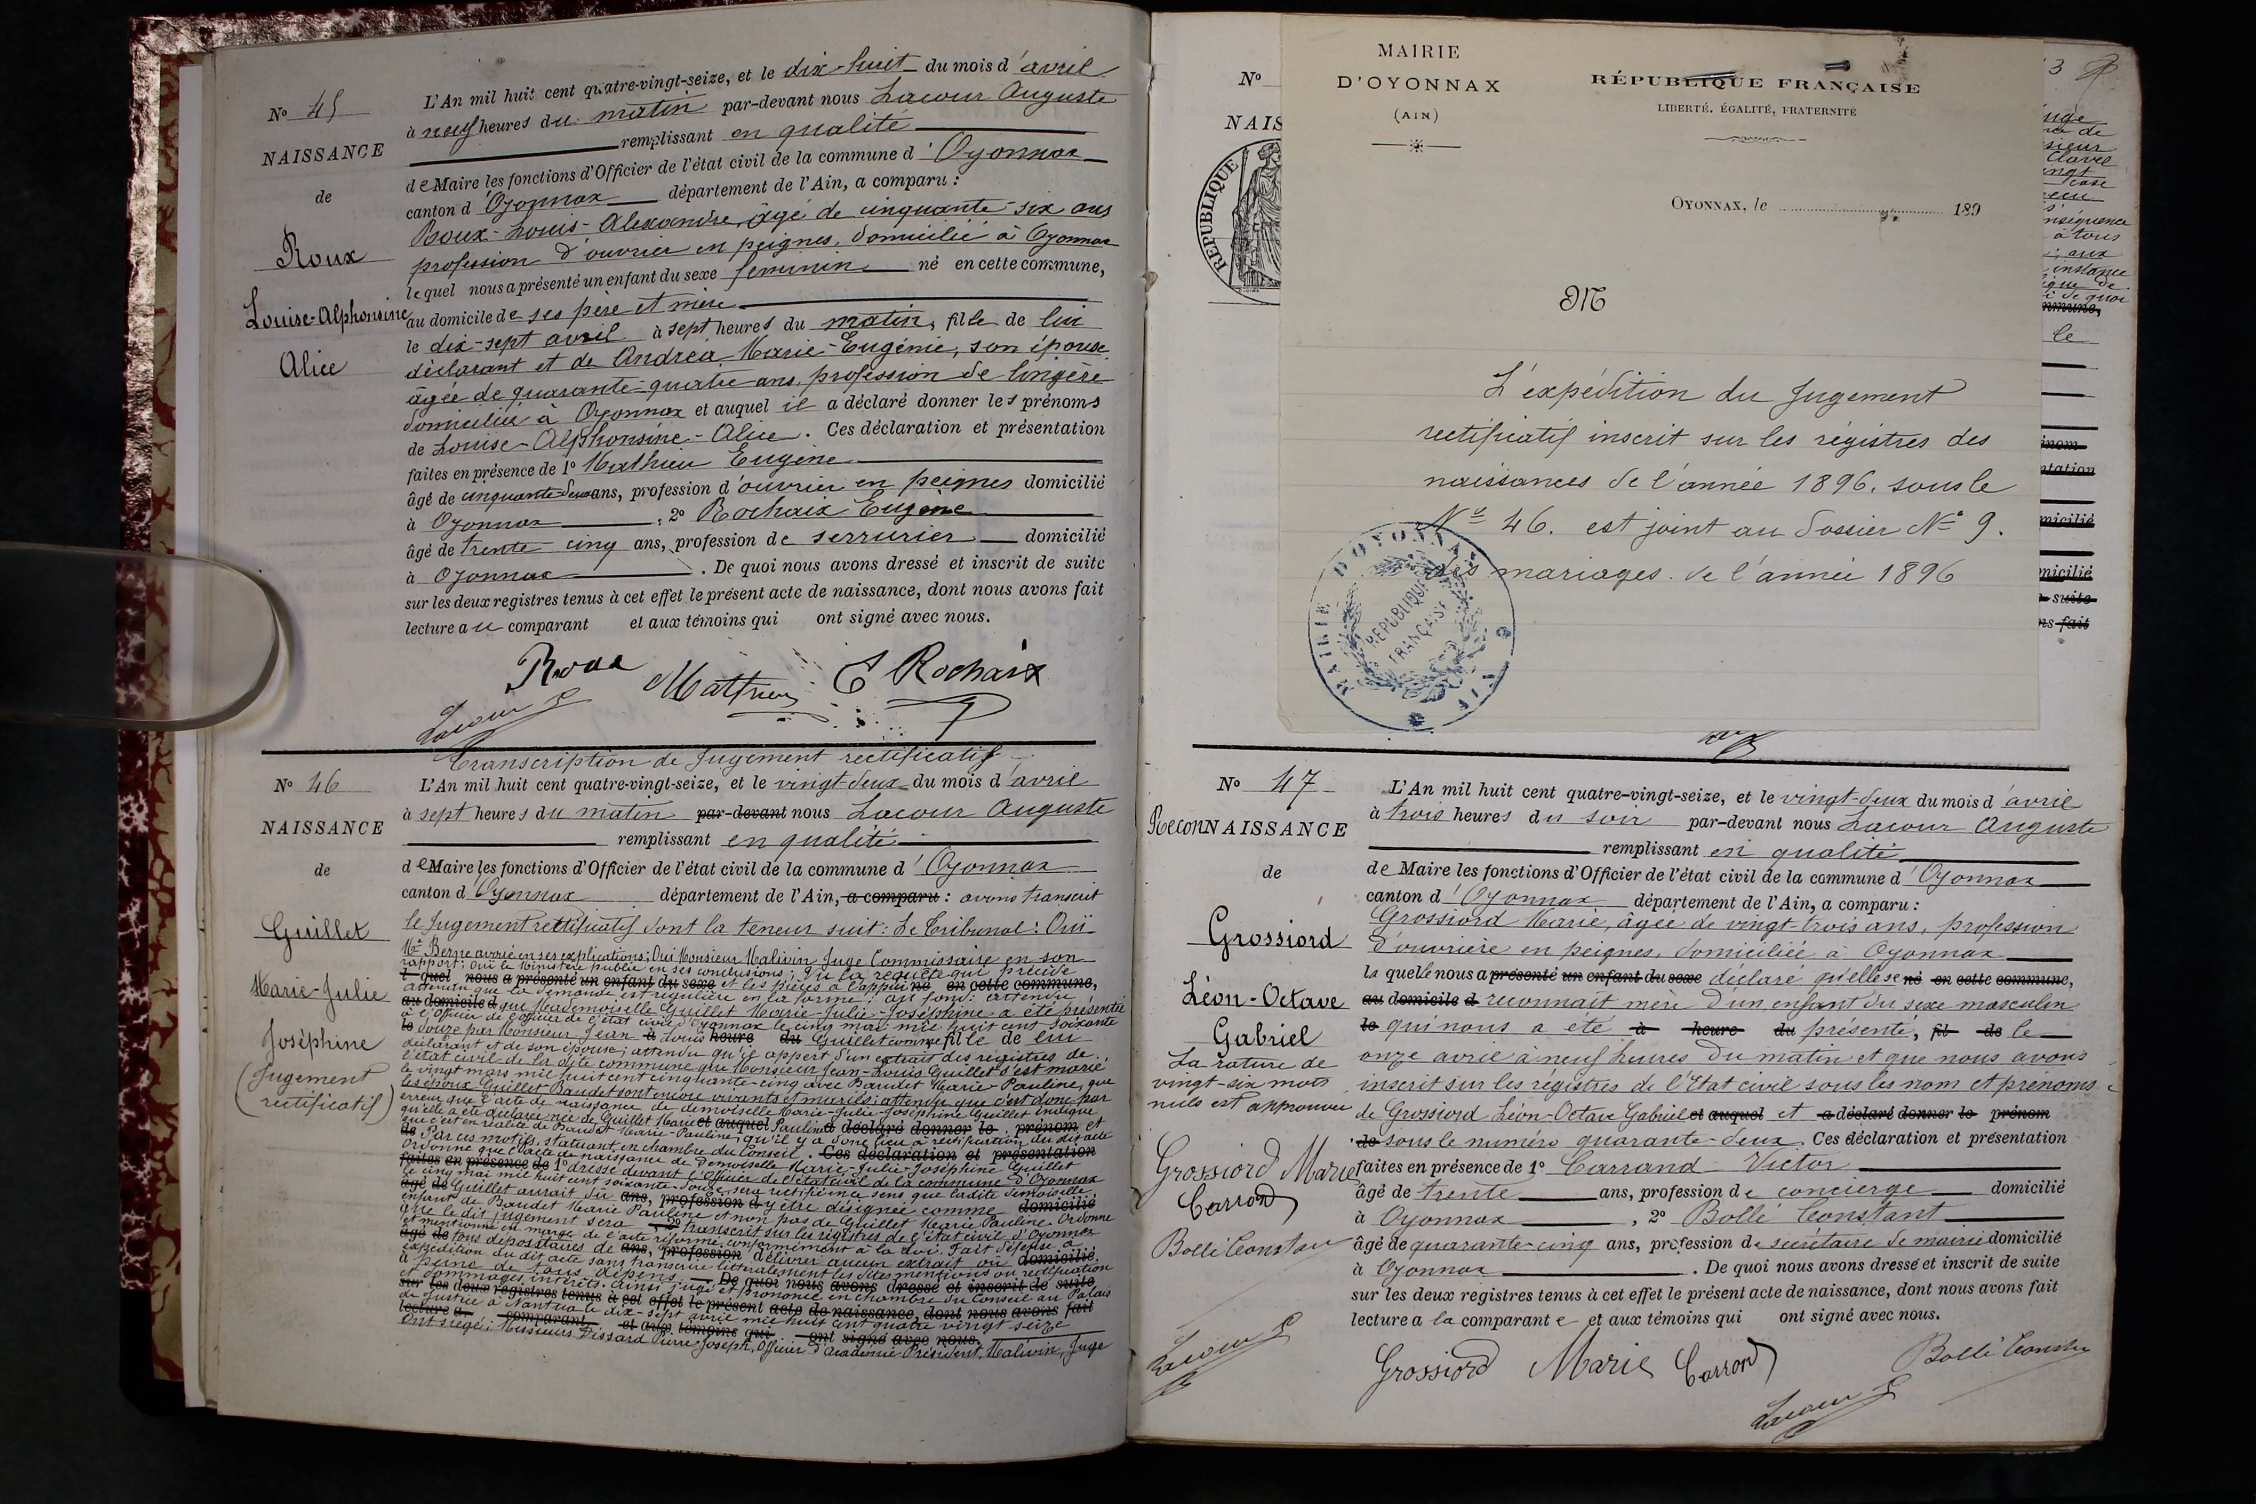 L'An mil huit cent quatre-vingt-seize, et le dix-huit du mois d'avril
à neuf heures du matin par-devant nous Lacour Auguste
remplissant en qualité
de Maire les fonctions d'Officier de l'état civil de la commune d'Oyonnax
canton d'Oyonnax département de l'Ain, a comparu :
Roux-Louis-Alexandre, âgé de cinquante-six ans
profession d'ouvrier en peignes, domicilié à Oyonnax
lequel nous a présenté un enfant du sexe féminin né en cette commune,
au domicile de ses père et mère
le dix-sept avril à sept heures du matin, fille de lui
déclarant et de Andréa Marie-Eugénie, son épouse
âgée de quarante-quatre ans, profession de lingère
domiciliée à Oyonnax et auquel il a déclaré donner les prénoms
de Louise-Alphonsine-Alice. Ces déclaration et présentation
faites en présence de 1° Mathieu Eugène
âgé de cinquante-deux ans, profession d'ouvrier en peignes domicilié
à Oyonnax, 2° Rochaix Eugène
âgé de trente-cinq ans, profession de serrurier domicilié
à Oyonnax. De quoi nous avons dressé et inscrit de suite
sur les deux registres tenus à cet effet le présent acte de naissance, dont nous avons fait
lecture au comparant et aux témoins qui ont signé avec nous.
Nº 45
NAISSANCE
de
Roux
Louise-Alphonsine
Alice
Roux Mathieu E Rochaix
Lacour
Transcription de Jugement rectificatif
Nº 46
NAISSANCE
de
Guillet
Marie-Julie
Joséphine
(Jugement
rectificatif)
L'An mil huit cent quatre-vingt-seize, et le vingt-deux du mois d'avril
à sept heures du matin par-devant nous Lacour Auguste
remplissant en qualité
de Maire les fonctions d'Officier de l'état civil de la commune d'Oyonnax
canton d'Oyonnax département de l'Ain, a comparu : avons transcrit
le Jugement rectificatif dont la teneur suit : Le Tribunal : Ouï
Me Berne avoué en ses explications ; Ouï Monsieur Malivin Juge Commissaire en son
rapport ; Ouï le Ministère public en ses conclusions ; Vu la requête qui précède
l quel nous a présenté un enfant du sexe et les pièces à l'appui né en cette commune,
attendu que la demande est régulière en la forme ; au fond : attendu
au domicile d que Mademoiselle Guillet Marie-Julie-Joséphine a été présentée
à l'Officier de l'état civil d'Oyonnax le cinq mai mil huit cent soixante
le douze par Monsieur Jean à Louis heure du Guillet comme fille de lui
déclarant et de son épouse ; attendu qu'il appert d'un extrait des registres de
l'état civil de la dite commune que Monsieur Jean-Louis Guillet s'est marié
le vingt mars mil huit cent cinquante-cinq avec Baudet Marie-Pauline, que
les époux Guillet Baudet sont encore vivants et mariés ; attendu que c'est donc par
erreur que l'acte de naissance de demoiselle Marie-Julie-Joséphine Guillet indique
qu'elle a été déclarée née de Guillet Marie et auquel Pauline a déclaré donner le prénom et
que c'est en réalité de Baudet Marie-Pauline, qu'il y a donc lieu à rectification du dit acte
de Par ces motifs, statuant en chambre du Conseil. Ces déclaration et présentation
Ordonne que l'acte de naissance de Demoiselle Marie-Julie-Joséphine Guillet
faites en présence de 1° dressé devant l'Officier de l'état civil de la commune d'Oyonnax
le cinq mai mil huit cent soixante-douze, sera rectifié en ce sens que ladite demoiselle
âgé de Guillet aurait dû ans, profession d y être désignée comme domicilié
enfant de Baudet Marie Pauline et non pas de Guillet Marie Pauline. Ordonne
que le dit jugement sera, 2° transcrit sur les registres de l'état civil d'Oyonnax
et mentionné en marge de l'acte réformé conformément à la loi. Fait défense à
âgé de tous dépositaires de ans, profession délivrer aucun extrait ou domicilié
expédition du dit acte sans transcrire littéralement les dites mentions ou rectification
à peine de tous dépens. De quoi nous avons dressé et inscrit de suite
et dommages, intérêts. Ainsi jugé et prononcé en chambre du Conseil au Palais
sur les deux registres tenus à cet effet le présent acte de naissance, dont nous avons fait
de Justice à Nantua le dix-sept avril mil huit cent quatre vingt seize
lecture a comparant et aux témoins qui ont signé avec nous.
Ont siégé : Messieurs Vissard Pierre-Joseph, Officier d'Académie Président, Malivin, Juge
Nº
NAIS
RÉPUBLIQUE
MAIRIE
D'OYONNAX
(AIN)
RÉPUBLIQUE FRANÇAISE
LIBERTÉ, ÉGALITÉ, FRATERNITÉ
OYONNAX, le 189
M
L'expédition du Jugement
rectificatif inscrit sur les régistres des
naissances de l'année 1896, sous le
Nº 46. est joint au dossier Nº 9.
des mariages de l'année 1896
MAIRIE D'OYONNAX (AIN)
RÉPUBLIQUE FRANÇAISE
Nº 47
RéconNAISSANCE
de
Grossiord
Léon-Octave
Gabriel
La rature de
vingt-six mots
nuls est approuvée
Grossiord Marie
Carrand
Bollé Constant
Lacour
L'An mil huit cent quatre-vingt-seize, et le vingt-deux du mois d'avril
à trois heures du soir par-devant nous Lacour Auguste
remplissant en qualité
de Maire les fonctions d'Officier de l'état civil de la commune d'Oyonnax
canton d'Oyonnax département de l'Ain, a comparu :
Grossiord Marie, âgée de vingt-trois ans, profession
d'ouvrière en peignes, domiciliée à Oyonnax
laquelle nous a présenté un enfant du sexe déclaré qu'elle se né en cette commune,
au domicile d reconnait mère d'un enfant du sexe masculin
le qui nous a été à heure du présenté, fil de le
onze avril à neuf heures du matin et que nous avons
inscrit sur les régistres de l'Etat civil sous les nom et prénoms
de Grossiord Léon-Octave Gabriel et auquel et a déclaré donner le prénom
de sous le numéro quarante-deux. Ces déclaration et présentation
faites en présence de 1° Carrand Victor
âgé de trente ans, profession de concierge domicilié
à Oyonnax, 2° Bollé Constant
âgé de quarante-cinq ans, profession de secrétaire de mairie domicilié
à Oyonnax. De quoi nous avons dressé et inscrit de suite
sur les deux registres tenus à cet effet le présent acte de naissance, dont nous avons fait
lecture a la comparante et aux témoins qui ont signé avec nous.
Grossiord Marie Carrand Bollé Constant
Lacour